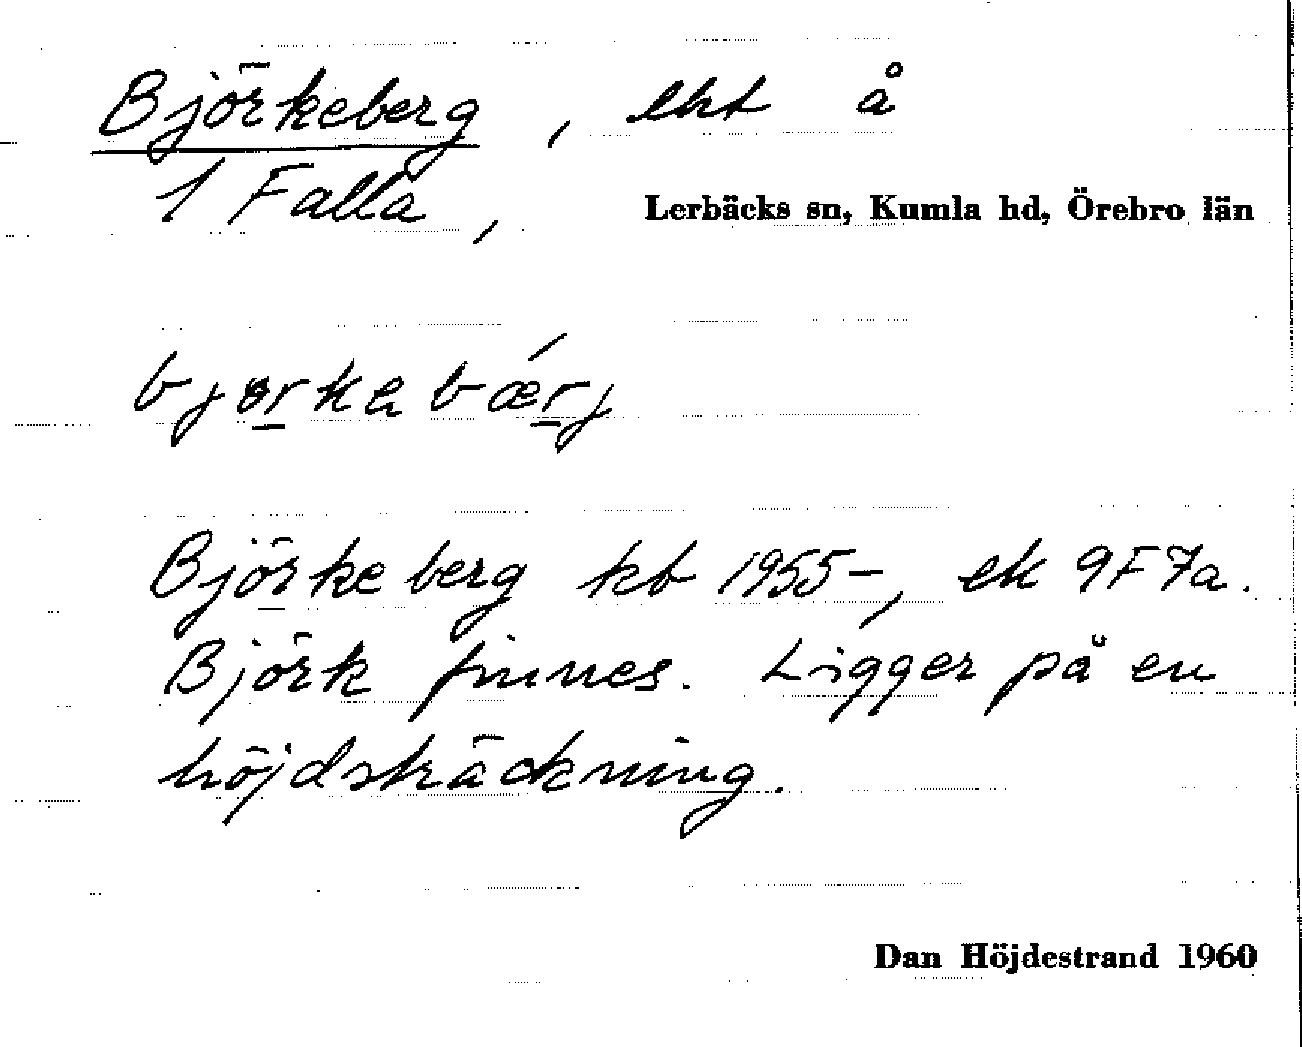 Björkeberg, lht å
1 Falla,
Lerbäcks sn, Kumla hd, Örebro län
bjørkabǽrj
Björkeberg kb 1955–, ek 9F7a.
Björk finnes. Ligger på en
höjdsträckning.
Dan Höjdestrand 1960